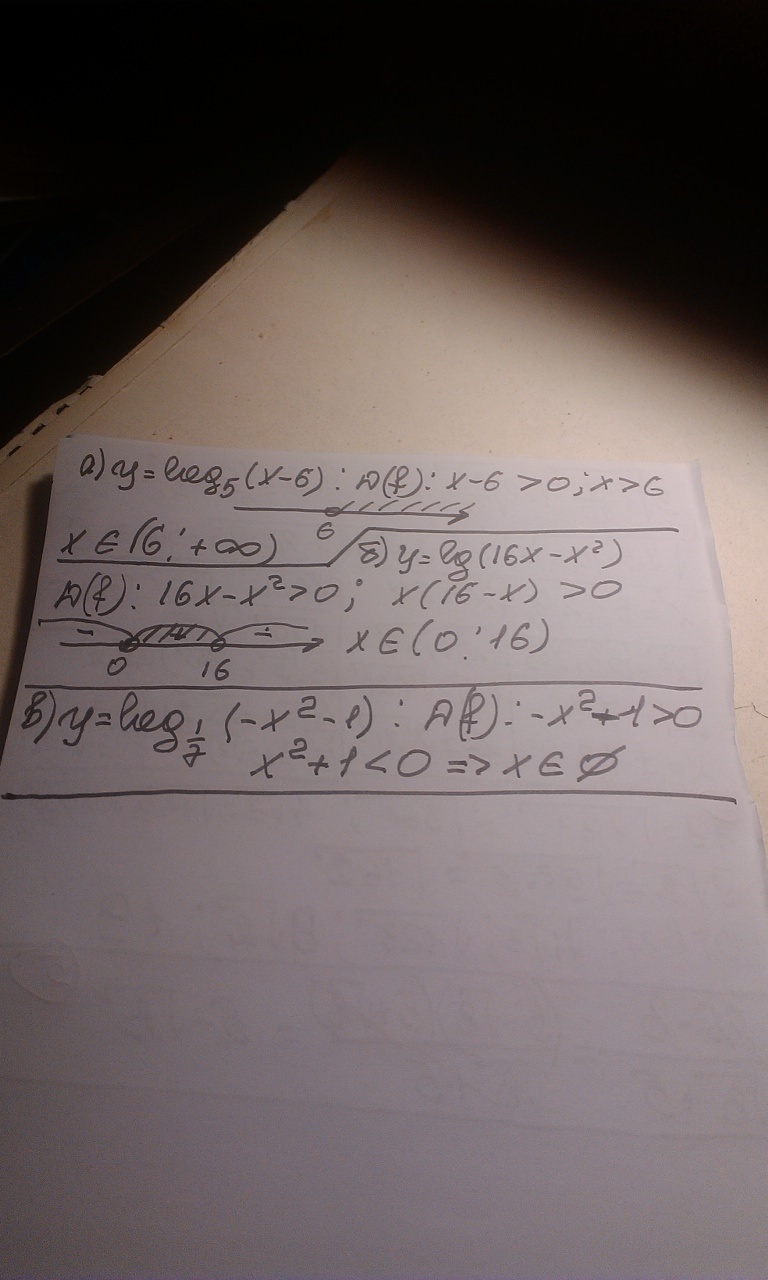 а) y = log₅(x-6) : D(f): x-6 > 0; x > 6
6
x ∈ (6; +∞)
б) y = lg(16x-x²)
D(f): 16x-x² > 0; x(16-x) > 0
- + -
0 16
x ∈ (0; 16)
в) y = log 1/7 (-x²-1) : D(f): -x²-1 > 0
x²+1 < 0 => x ∈ ∅